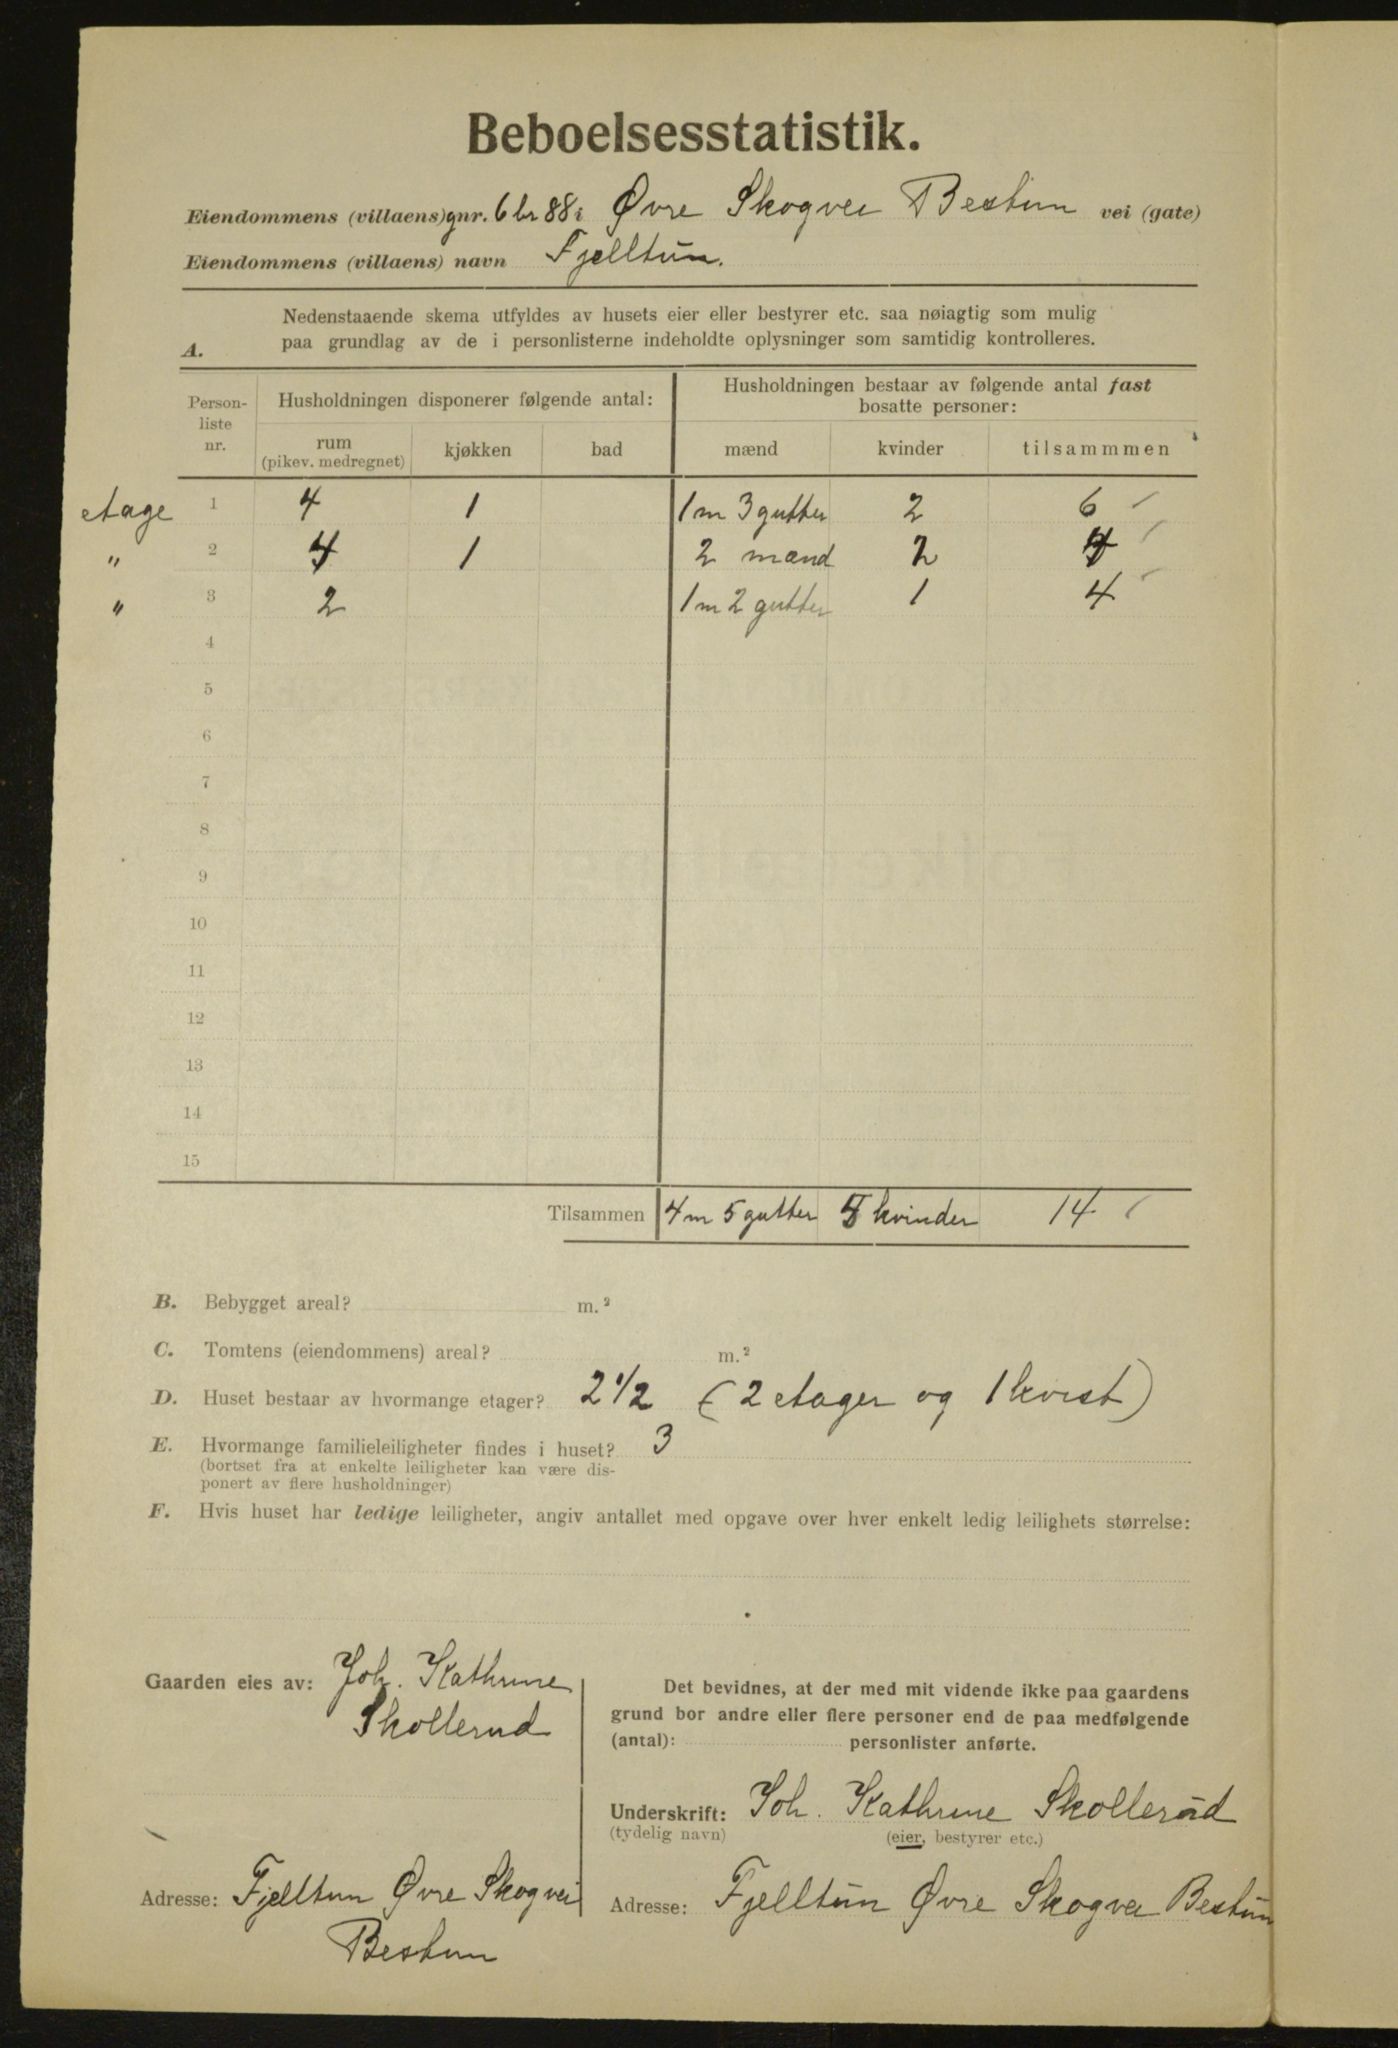 Beboelsesstatistik.
Eiendommens (villaens) gnr. 6 br 88 i Øvre Skogvei Bestum vei (gate)
Eiendommens (villaens) navn Fjelltun.
Nedenstaaende skema utfyldes av husets eier eller bestyrer etc. saa nøiagtig som mulig
A. paa grundlag av de i personlisterne indeholdte oplysninger som samtidig kontrolleres.
Person-liste nr. Husholdningen disponerer følgende antal: Husholdningen bestaar av følgende antal fast bosatte personer:
rum (pikev. medregnet) kjøkken bad mænd kvinder tilsammmen
etage 1 4 1 1 m 3 gutter 2 6
" 2 4 1 2 mænd 2 4
" 3 2 1 m 2 gutter 1 4
4
5
6
7
8
9
10
11
12
13
14
15
Tilsammen 4 m 5 gutter 5 kvinder 14
B. Bebygget areal? m.²
C. Tomtens (eiendommens) areal? m.²
D. Huset bestaar av hvormange etager? 2 1/2 (2 etager og 1 kvist)
E. Hvormange familieleiligheter findes i huset? 3
(bortset fra at enkelte leiligheter kan være dis-
ponert av flere husholdninger)
F. Hvis huset har ledige leiligheter, angiv antallet med opgave over hver enkelt ledig leilighets størrelse:
Gaarden eies av: Joh. Kathrine
Skollerud
Adresse: Fjelltun Øvre Skogvei
Bestum
Det bevidnes, at der med mit vidende ikke paa gaardens
grund bor andre eller flere personer end de paa medfølgende
(antal): personlister anførte.
Underskrift: Joh. Kathrine Skollerud
(tydelig navn) (eier, bestyrer etc.)
Adresse: Fjelltun Øvre Skogvei Bestum